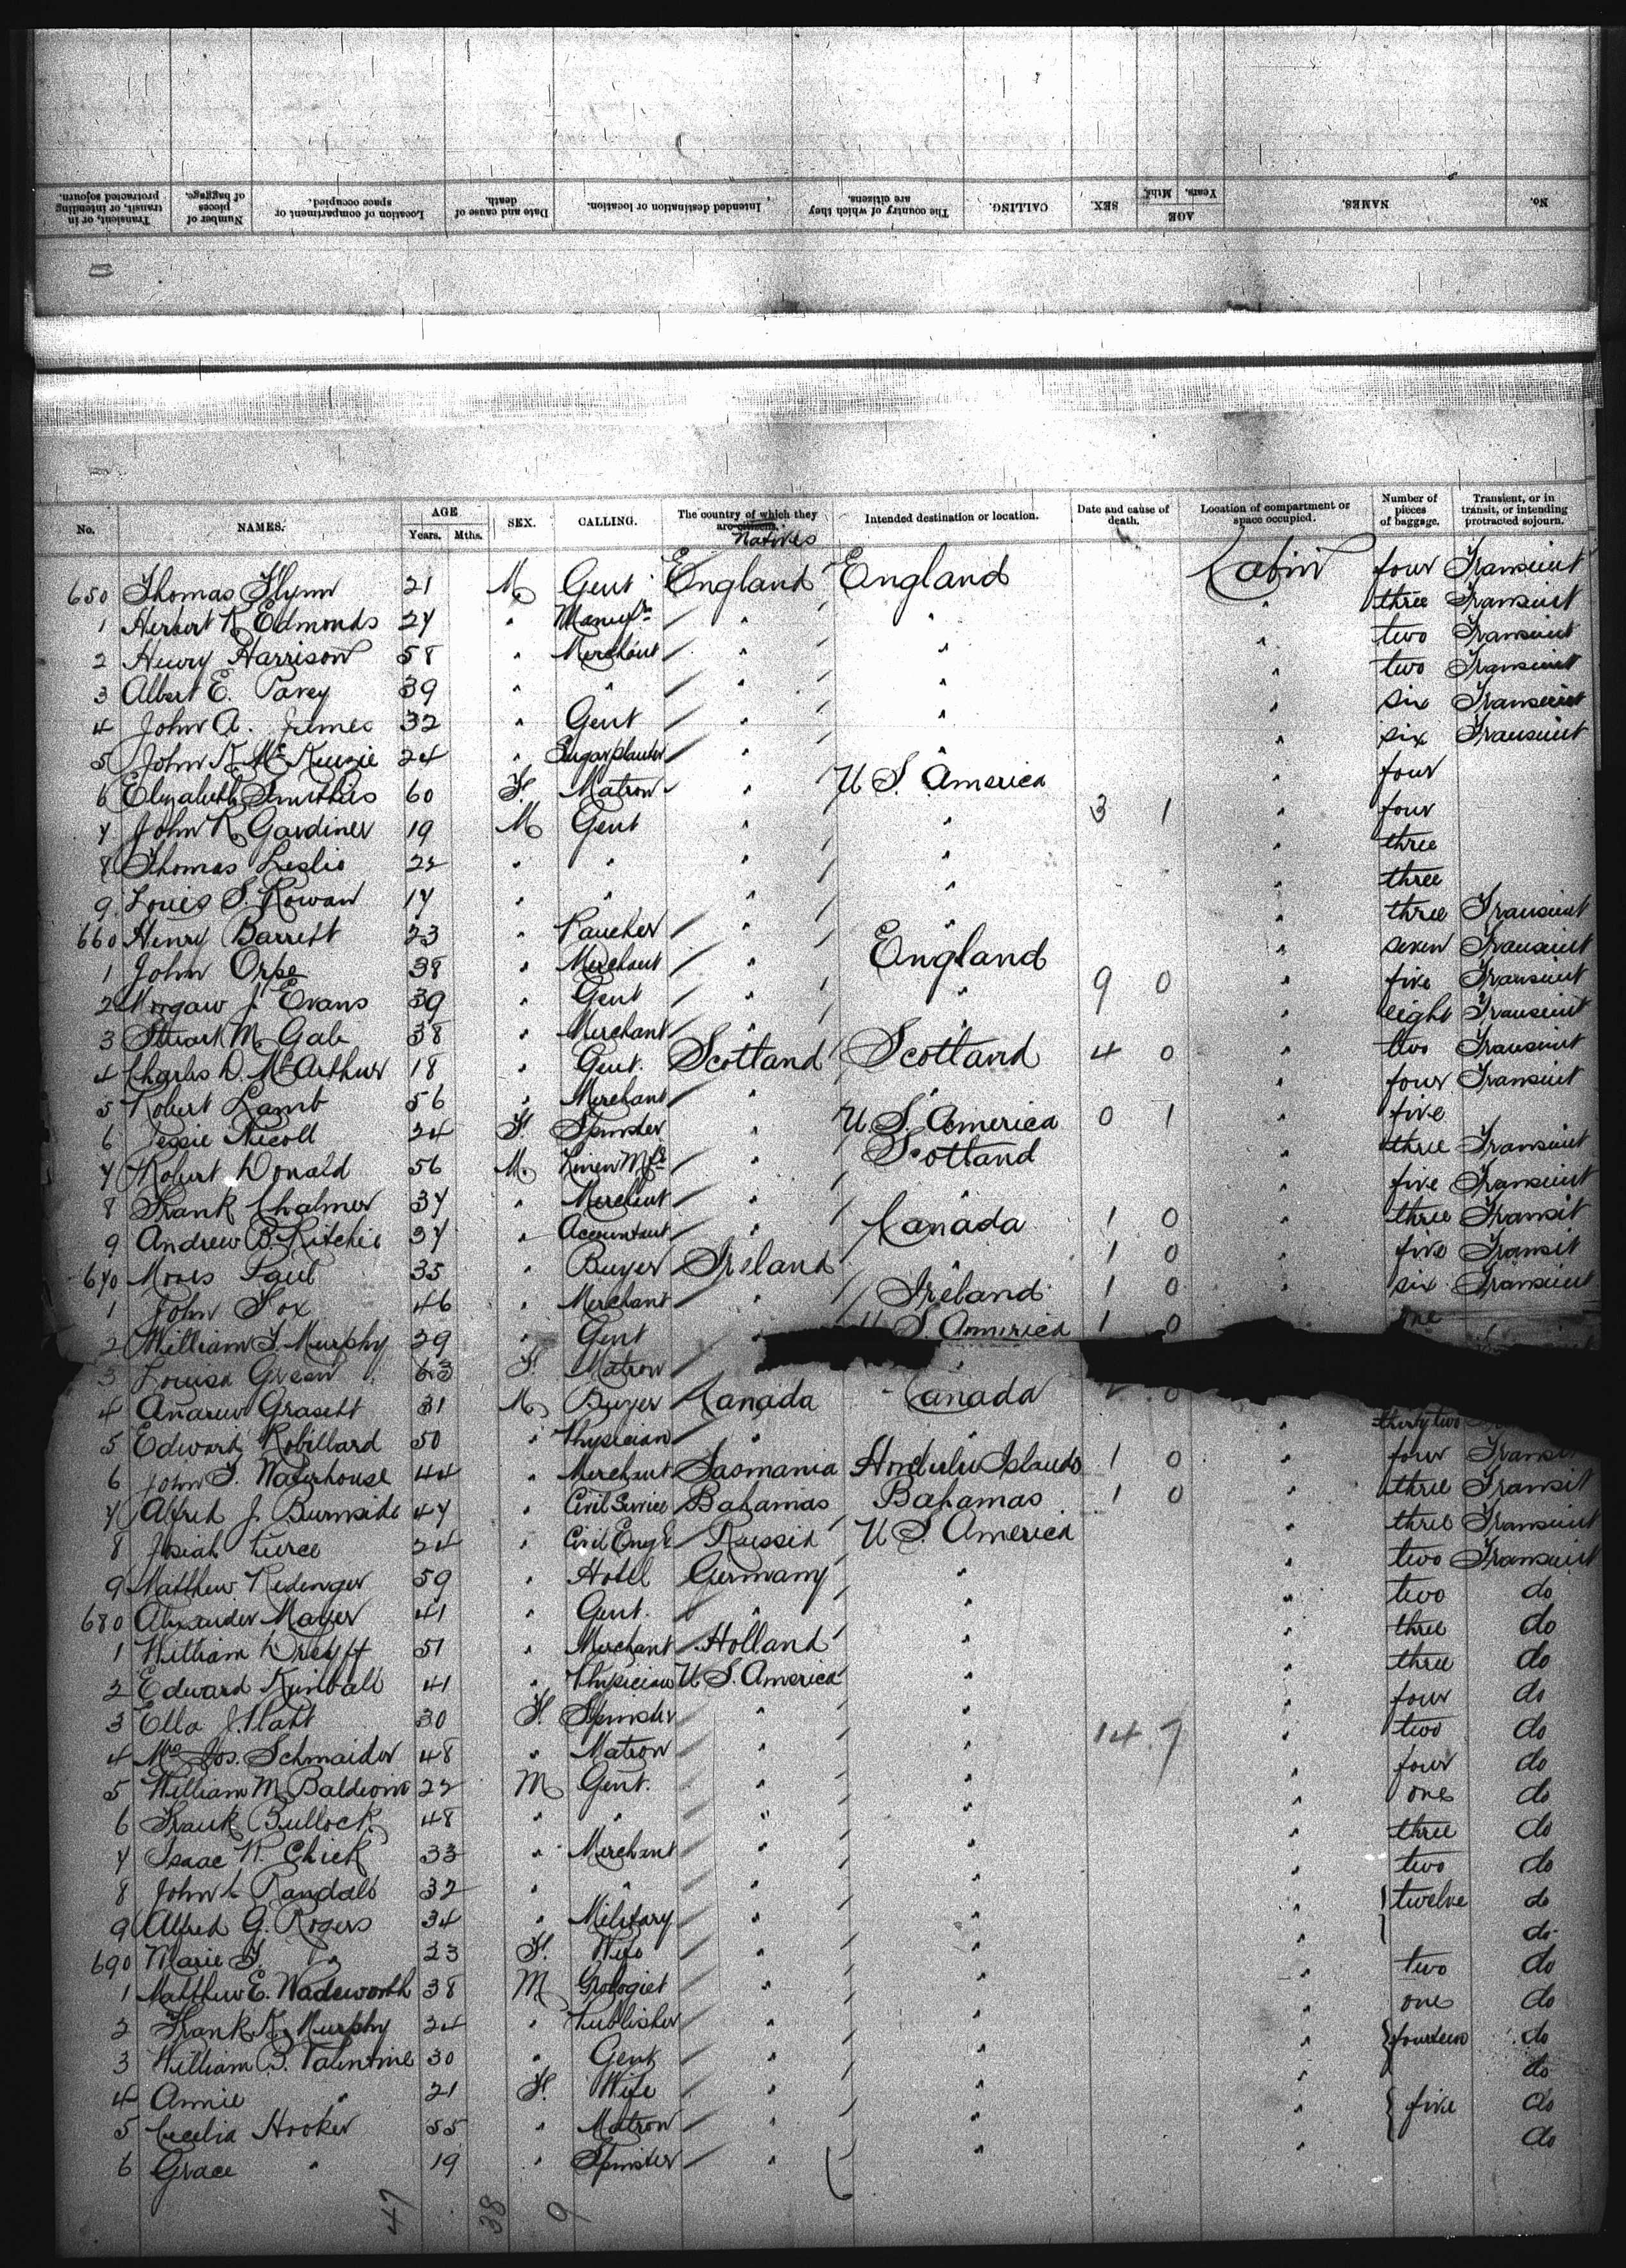 No. NAMES. AGE Years. Mths. SEX. CALLING. The country of which they are citizens. Intended destination or location. Date and cause of death. Location of compartment or space occupied. Number of pieces of baggage. Transient, or in transit, or intending protracted sojourn.
No. NAMES. AGE Years. Mths. SEX. CALLING. The country of which they are citizens. Natives Intended destination or location. Date and cause of death. Location of compartment or space occupied. Number of pieces of baggage. Transient, or in transit, or intending protracted sojourn.
650 Thomas Flynn 21 M Gent England England Cabin four Transient
1 Herbert R Edmonds 27 " Manufr " " " three Transient
2 Henry Harrison 58 " Merchant " " " two Transient
3 Albert E. 39 " " " " two Transient
4 John A. 32 " Gent " " " six Transient
5 John R McKenzie 24 " Sugarplanter " " " six Transient
6 Elizabeth 60 F. Matron " U S. America " four
7 John R Gardiner 19 M Gent " " 3 1 " four
8 Thomas Leslie 22 " " " " " three
9 Louis S. Rowan 17 " " " " " three
660 Henry Barrett 23 " Rancher " " " three Transient
1 John Orpe 38 " Merchant " England " seven Transient
2 Morgan J Evans 39 " Gent " " 9 0 " five Transient
3 Stuart M Gale 38 " Merchant " " " eight Transient
4 Charles D. McArthur 18 " Gent. Scotland Scotland 4 0 " two Transient
5 Robert Lamb 56 " Merchant " " " four Transient
6 Jessie Nicoll 24 F. Spinster " U. S. America 0 1 " five
7 Robert Donald 56 M. Linen Mfr " Scotland " three Transient
8 Frank Chalmer 37 " Merchant " " " five Transient
9 Andrew B. Ritchie 37 " Accountant " Canada 1 0 " three Transit
670 Moses 35 " Buyer Ireland " 1 0 " five Transit
1 John Fox 46 " Merchant " Ireland 1 0 " six Transient
2 William F. Murphy 29 " Gent " S. America 1 0 one
3 Louisa Green 63 F. Matron "
4 Andrew Grasett 31 M Buyer Canada Canada 0
5 Edward Robillard 50 " Physician " " " thirty two
6 John T. Waterhouse 44 " Merchant Tasmania Honolulu Islands 1 0 " four Transit
7 Alfred J Burnside 47 " Civil Service Bahamas Bahamas 1 0 " three Transit
8 Josiah Pierce 24 " Civil Engr Russia U S. America three Transient
9 Matthew Redenger 59 " Hotel Germany " " two Transient
680 Alexander Mayer 41 " Gent. " " " two do
1 William 51 " Merchant Holland " " three do
2 Edward Kimball 41 " Physician U S. America " " three do
3 Ella J. Platt 30 F. Spinster " " " four do
4 Mrs Jos. Schmaider 48 " Matron " " 14 7 " two do
5 William M Baldwin 22 M Gent. " " " four do
6 Frank Bullock 48 " " " " " one do
7 Isaac W. Chick 33 " Merchant " " " three do
8 John L Randall 32 " " " " " two do
9 Alfred G. Rogers 34 " Military " " " twelve do
690 Marie F. " 23 F. Wife " " " do
1 Matthew E. Wadsworth 38 M Geologist " " " two do
2 Frank K. Murphy 24 " Publisher " " " one do
3 William B. Valentine 30 " Gent " " " fourteen do
4 Annie " 21 F. Wife " " " do
5 Cecelia Hooker 55 " Matron " " " five do
6 Grace " 19 " Spinster " " " do
47 38 9